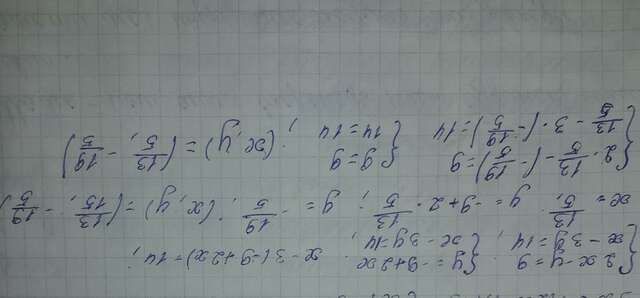 { 2x - y = 9
x - 3y = 14 ; { y = -9 + 2x
x - 3y = 14 ; x - 3(-9 + 2x) = 14 ;
x = 13/5, y = -9 + 2 · 13/5 ; y = -19/5 ; (x, y) = (13/15, -19/5)
{ 2 · 13/5 - (-19/5) = 9
13/5 - 3 · (-19/5) = 14 { 9 = 9
14 = 14 ; (x, y) = (13/5, -19/5)